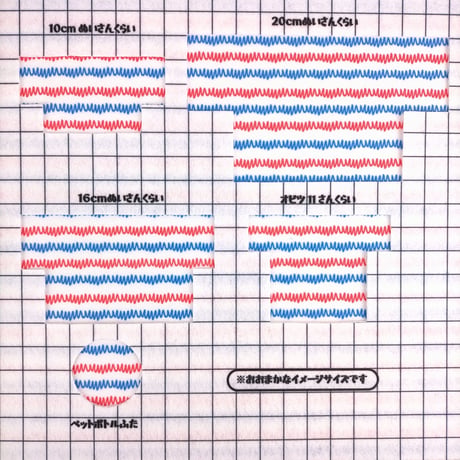 10cm ぬいさんくらい
20cmぬいさんくらい
16cmぬいさんくらい
オビツ11さんくらい
※おおまかなイメージサイズです
ペットボトルふた